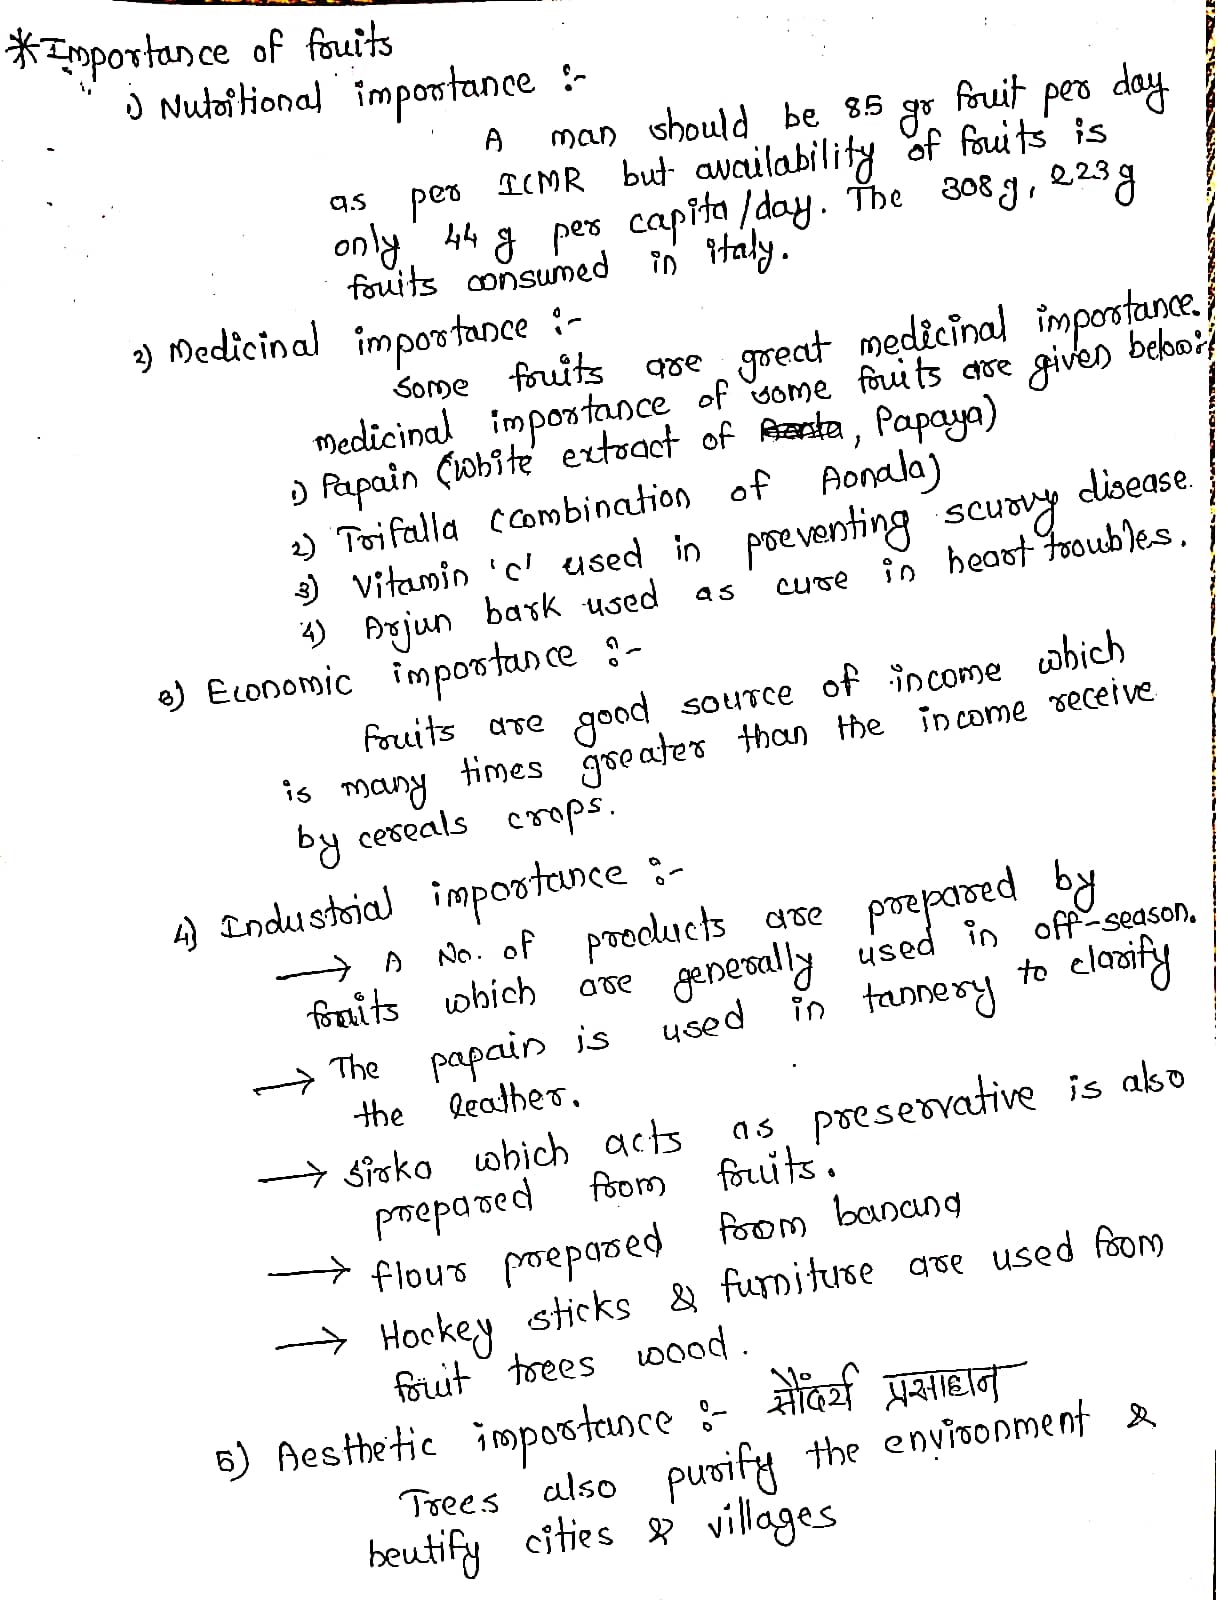 * Importance of fruits
1) Nutritional importance :-
A man should be 85 gr fruit per day
as per ICMR but availability of fruits is
only 44 g per capita /day. The 308 g, 223 g
fruits consumed in italy.
2) Medicinal importance :-
Some fruits are great medicinal importance.
medicinal importance of some fruits are given below:
1) Papain (white extract of , Papaya)
2) Trifalla (combination of Aonala)
3) Vitamin 'c' used in preventing scurvy disease.
4) Arjun bark used as cure in heart troubles.
3) Economic importance :-
fruits are good source of income which
is many times greater than the income receive
by cereals crops.
4) Industrial importance :-
→ A No. of products are prepared by
fruits which are generally used in off-season.
→ The papain is used in tannery to clarify
the leather.
→ Sirka which acts as preservative is also
prepared from fruits.
→ flour prepared from banana
→ Hockey sticks & furniture are used from
fruit trees wood.
5) Aesthetic importance :- सौंदर्य प्रसाहान
Trees also purify the environment &
beutify cities & villages